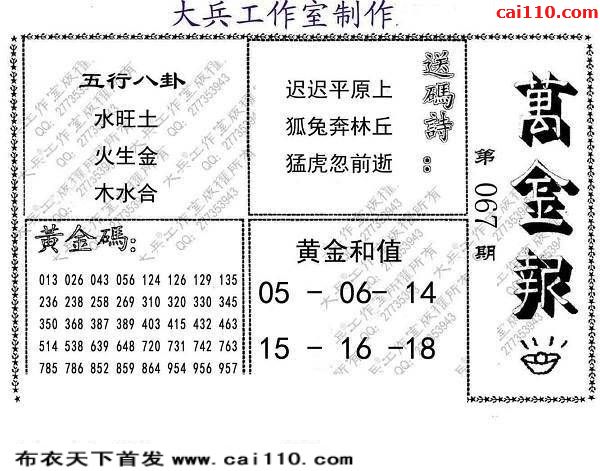 大兵工作室制作
cai110.com
五行八卦
水旺土
火生金
木水合
送碼詩:
迟迟平原上
狐兔奔林丘
猛虎忽前逝
萬金報
第067期
黃金碼:
013 026 043 056 124 126 129 135
236 238 258 269 310 320 330 345
350 368 387 389 403 415 432 463
514 538 639 648 720 731 742 763
785 786 852 859 864 954 956 957
黄金和值
05 - 06- 14
15 - 16 -18
大兵®工作室版權所有
QQ: 277353943
布衣天下首发 www.cai110.com